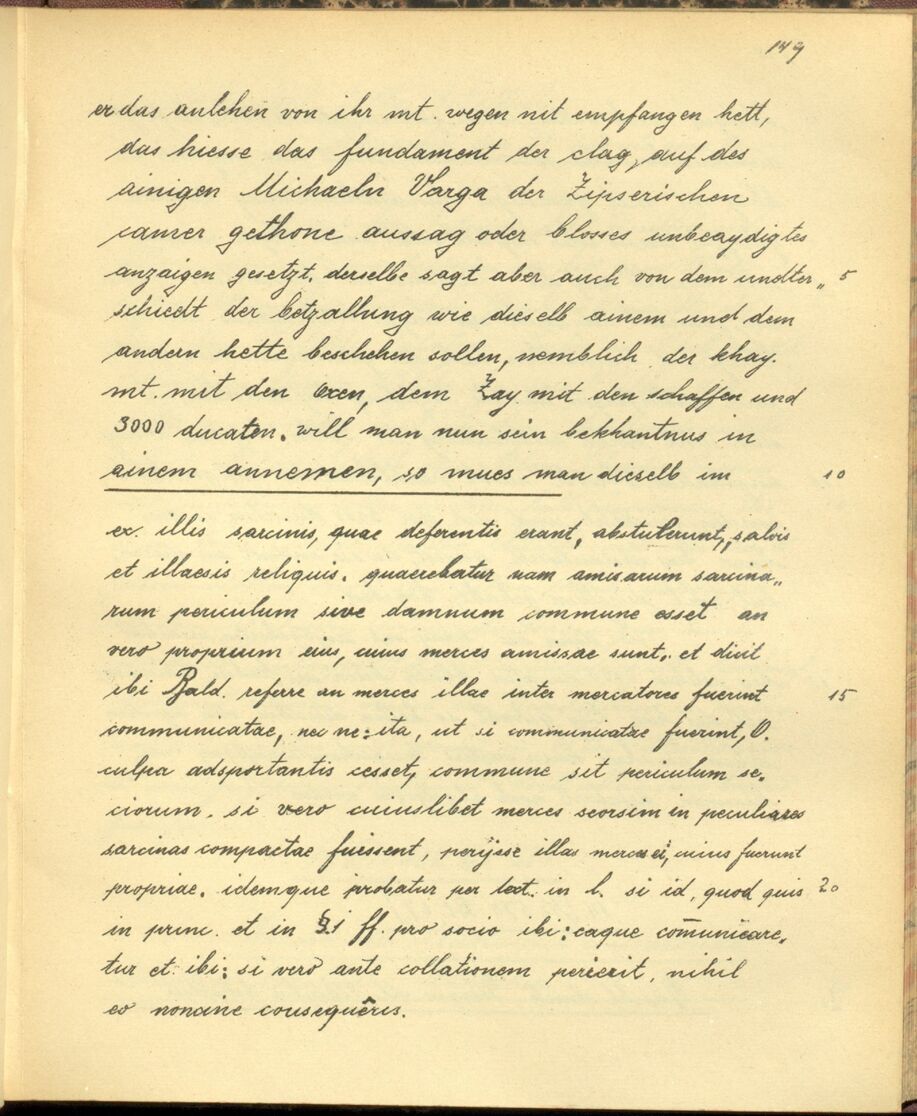 149
er das anlehen von ihr mt. wegen nit empfangen hett,
das hiesse das fundament der clag auf des
ainigen Michaeln Varga der Zipserischen
camer gethone aussag oder blosses unbeaydigtes
anzaigen gesetzt. derselbe sagt aber auch von dem undter„ 5
schiedt der betzallung wie dieselb ainem und dem
andern hette beschehen sollen, nemblich der khay.
mt. mit den oxen, dem Zay mit den schaffen und
3000 ducaten. will man nun sein bekhantnus in
ainem annemen, so mues man dieselb im 10
ex illis sarcinis, quae deferentis erant, abstulerunt, salvis
et illaesis reliquis. quaerebatur nam amisarum sarcina„
rum periculum sive damnum commune esset an
vero proprium eius, cuius merces amissae sunt. et dicit
ibi Bald. referre an merces illae inter mercatores fuerint 15
communicatae, nec ne: ita, ut si communicatae fuerint, O.
culpa adsportantis cesset, commune sit periculum so.
ciorum. si vero cuiuslibet merces seorsim in peculiares
sarcinas compactae fuissent, perijsse illas merces ei, cuius fuerunt
propriae. idemque probatur per text. in l. si id, quod quis 20
in princ. et in §.1 ff. pro socio ibi: eaque com̄unicare„
tur et ibi: si vero ante collationem perierit, nihil
eo nomine consequêris.